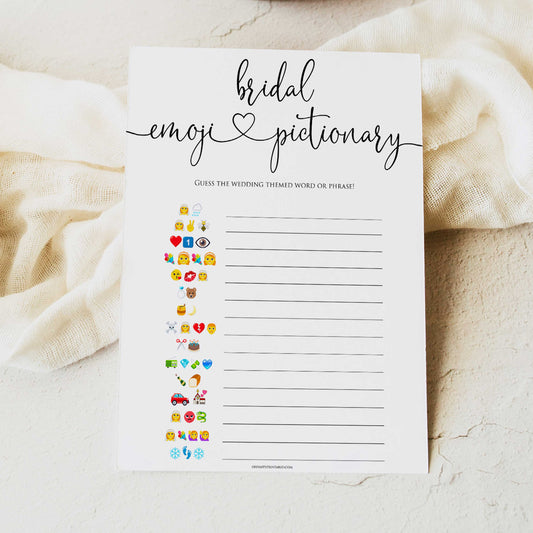 bridal
emoji pictionary
Guess the wedding themed word or phrase!
1